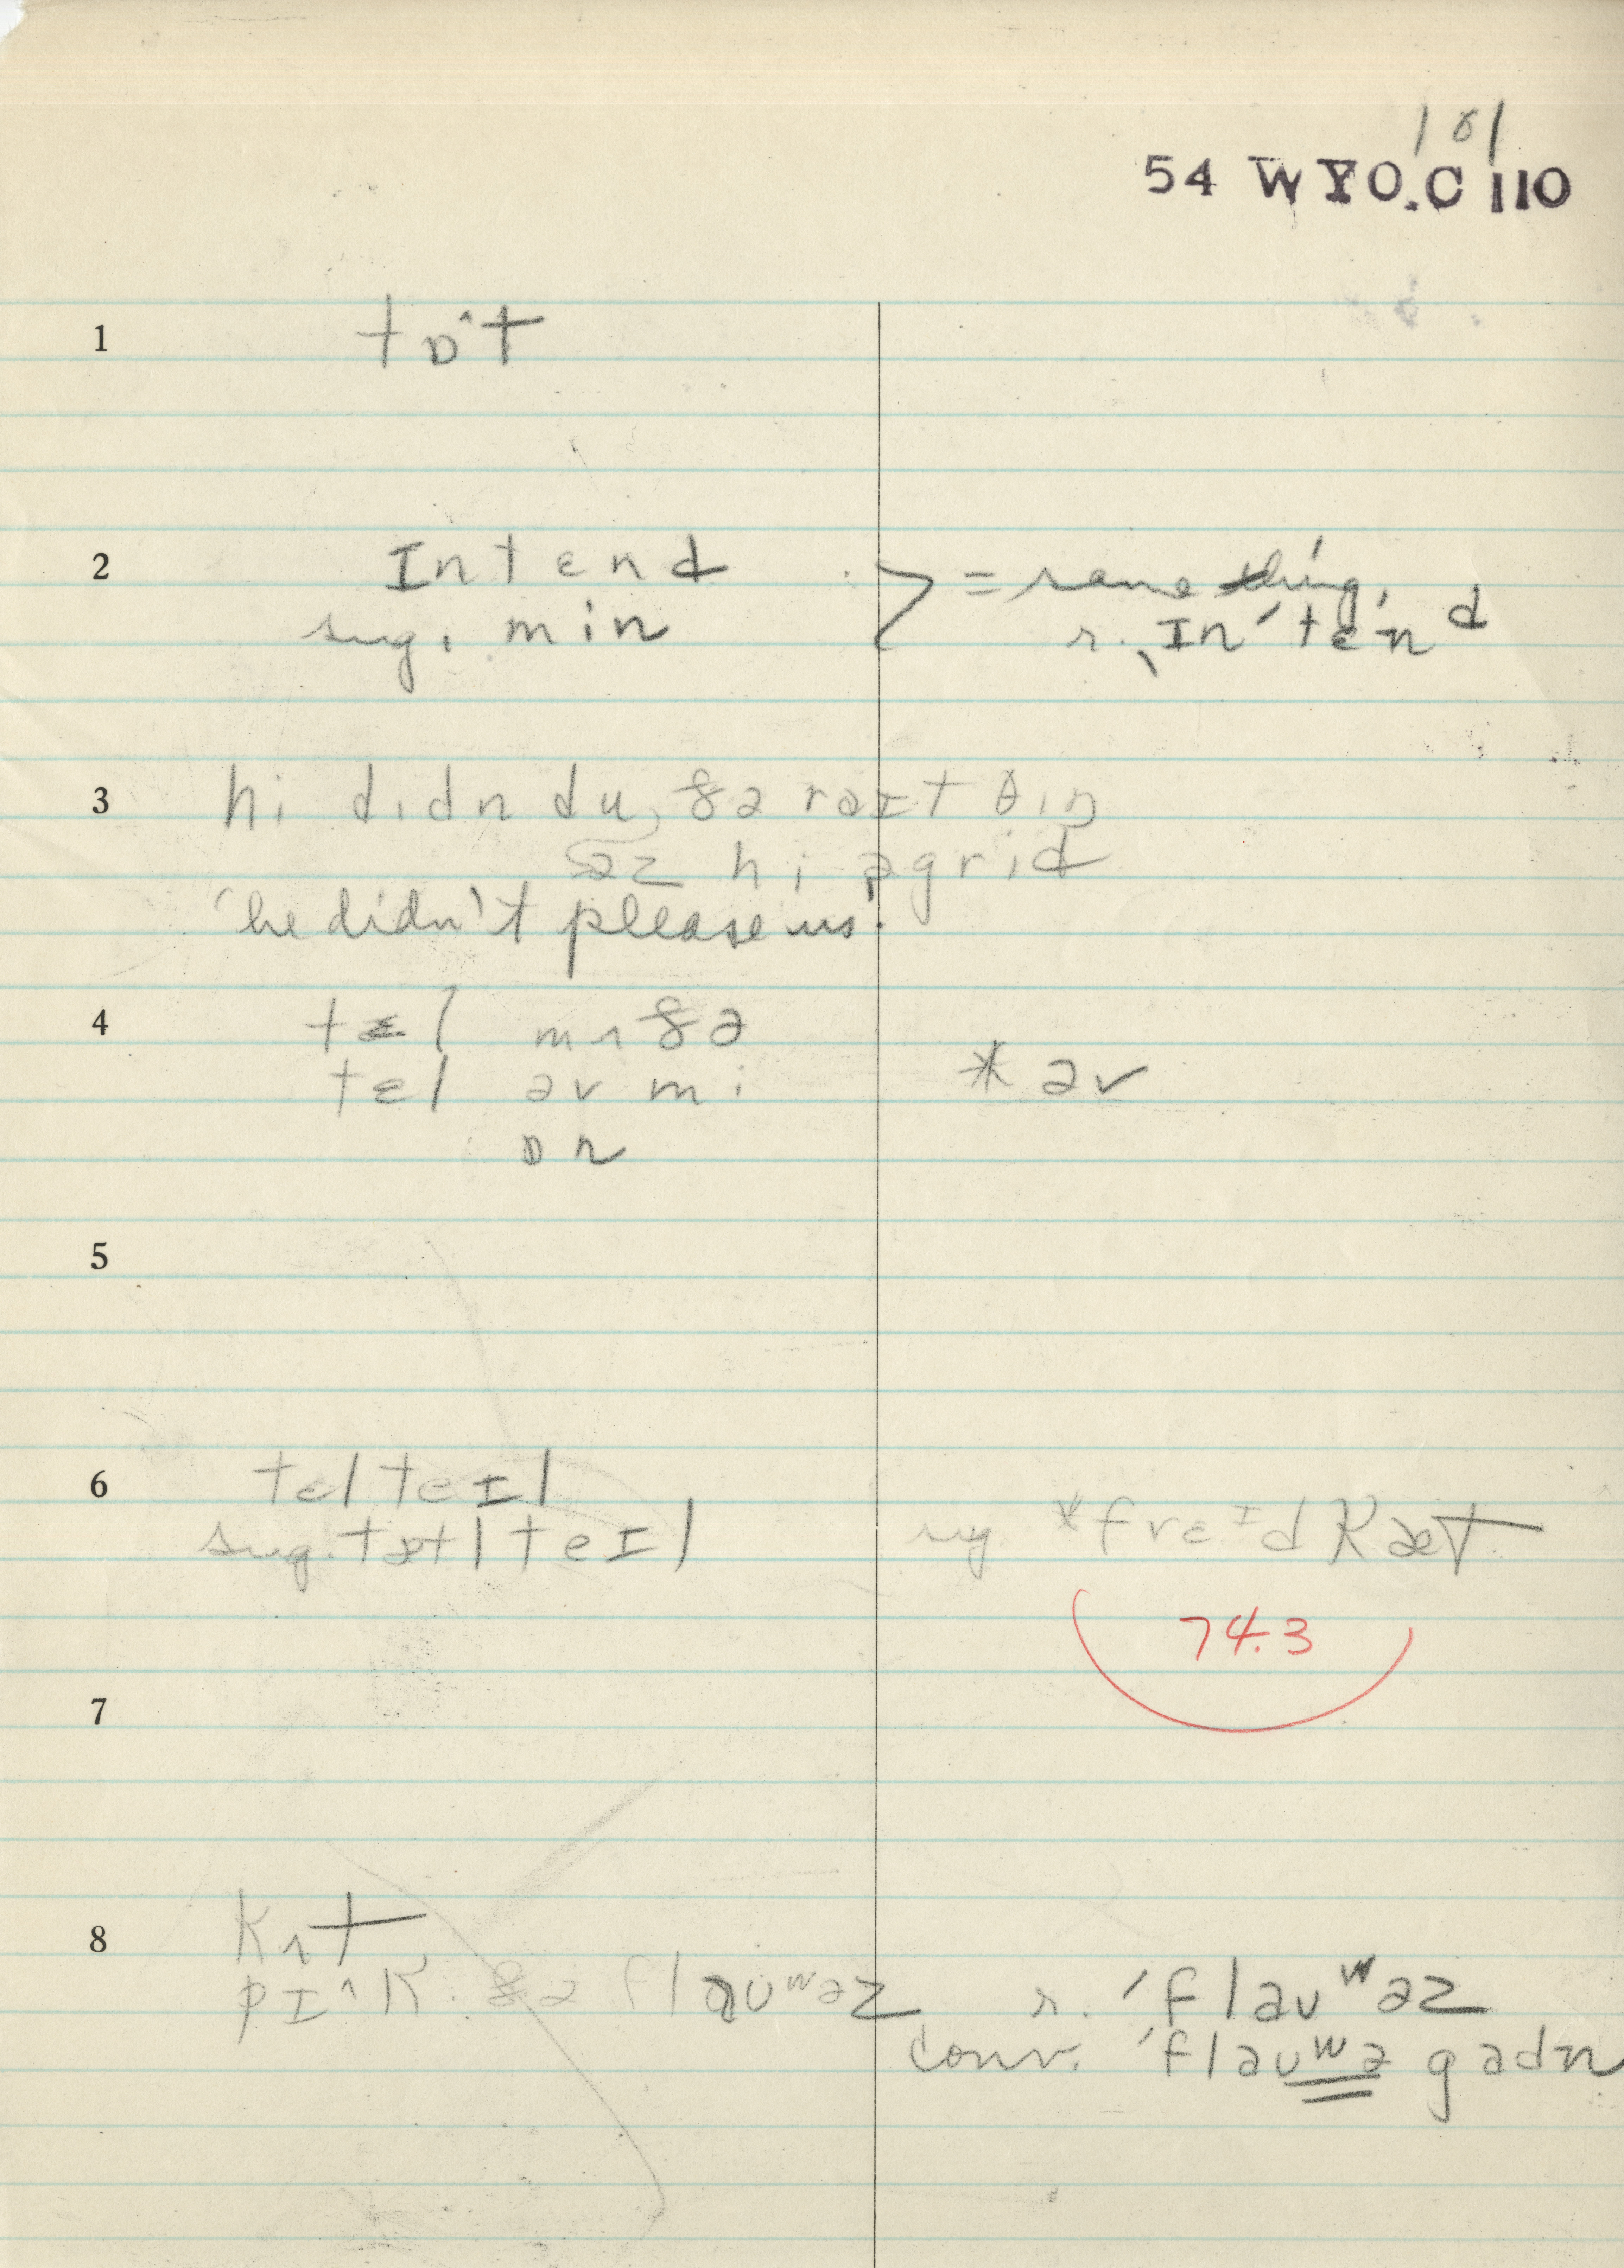 101
54 WYO.C 110
1 tɒ^t
2 Intɛnd } = same thing,
sug. min r. ˌIn'tɛ'nd
3 hi didn du, ðə raɪt θiŋ
əz hi əgrid
'he didn't please us'.
4 tɛl mʌðə
tɛl əv mi * əv
ɒn
5
6 tɛlteɪl
sug. tætlteɪl sug *freɪdkæt
74.3
7
8 kʌt
pɪ^k. ðə flaʊʷəz r. 'flaʊʷəz
conv. 'flaʊʷə gadn